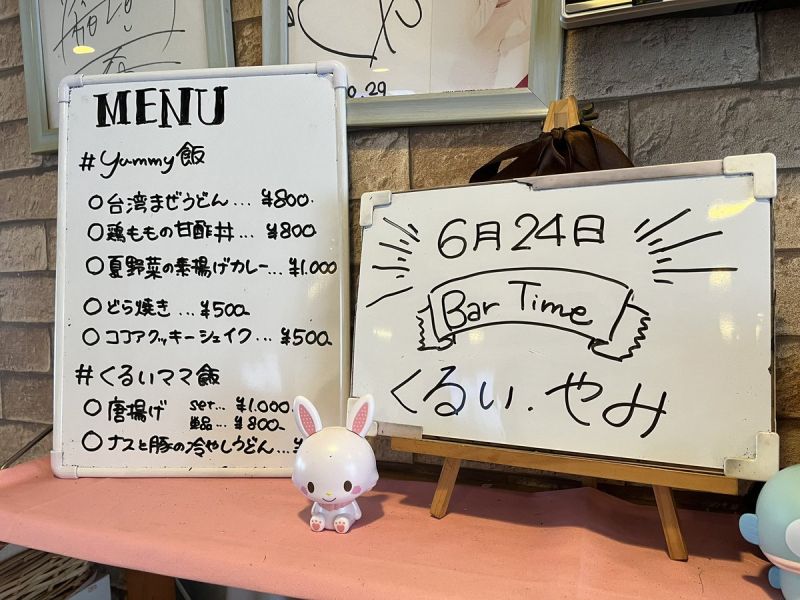 MENU
#yummy飯
○台湾まぜうどん...¥800.
○鶏ももの甘酢丼...¥800
○夏野菜の素揚げカレー...¥1.000
○どら焼き...¥500.
○ココアクッキーシェイク...¥500.
#くるいママ飯
○唐揚げ set...¥1.000.
単品...¥800.
○ナスと豚の冷やしうどん...¥
6月24日
Bar Time
くるい.やみ
.29